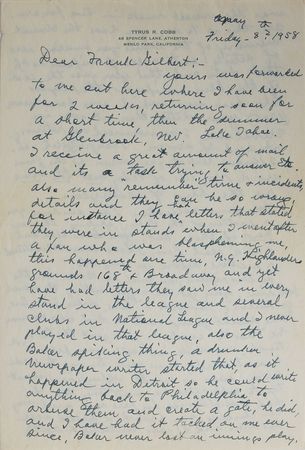 TYRUS R. COBB
48 SPENCER LANE, ATHERTON
MENLO PARK, CALIFORNIA
Friday - 8th 1958
Dear Frank Gilbert;-
yours was forwarded
to me out here where I have been
for 2 weeks, returning soon for
a short time, then the summer
at Glenbrook, Nev. Lake Tahoe.
I receive a great amount of mail
and its a task trying to answer
also many "remember" time & incidents
details and they can be so wrong,
for instance I have letters that stated
they were in stands when I went after
a fan who was blaspheming me,
this happened one time, N.Y. Highlanders
grounds 168th & Broadway and yet
have had letters they saw me in every
stand in the league and several
clubs in National League and I never
played in that league, also the
Baker spiking thing, a drunken
newspaper writer started that, as it
happened in Detroit so he could write
anything back to Philadelphia to
arouse them and create a gate, he did,
and I have had it tacked on me ever
since, Baker never lost an innings play.